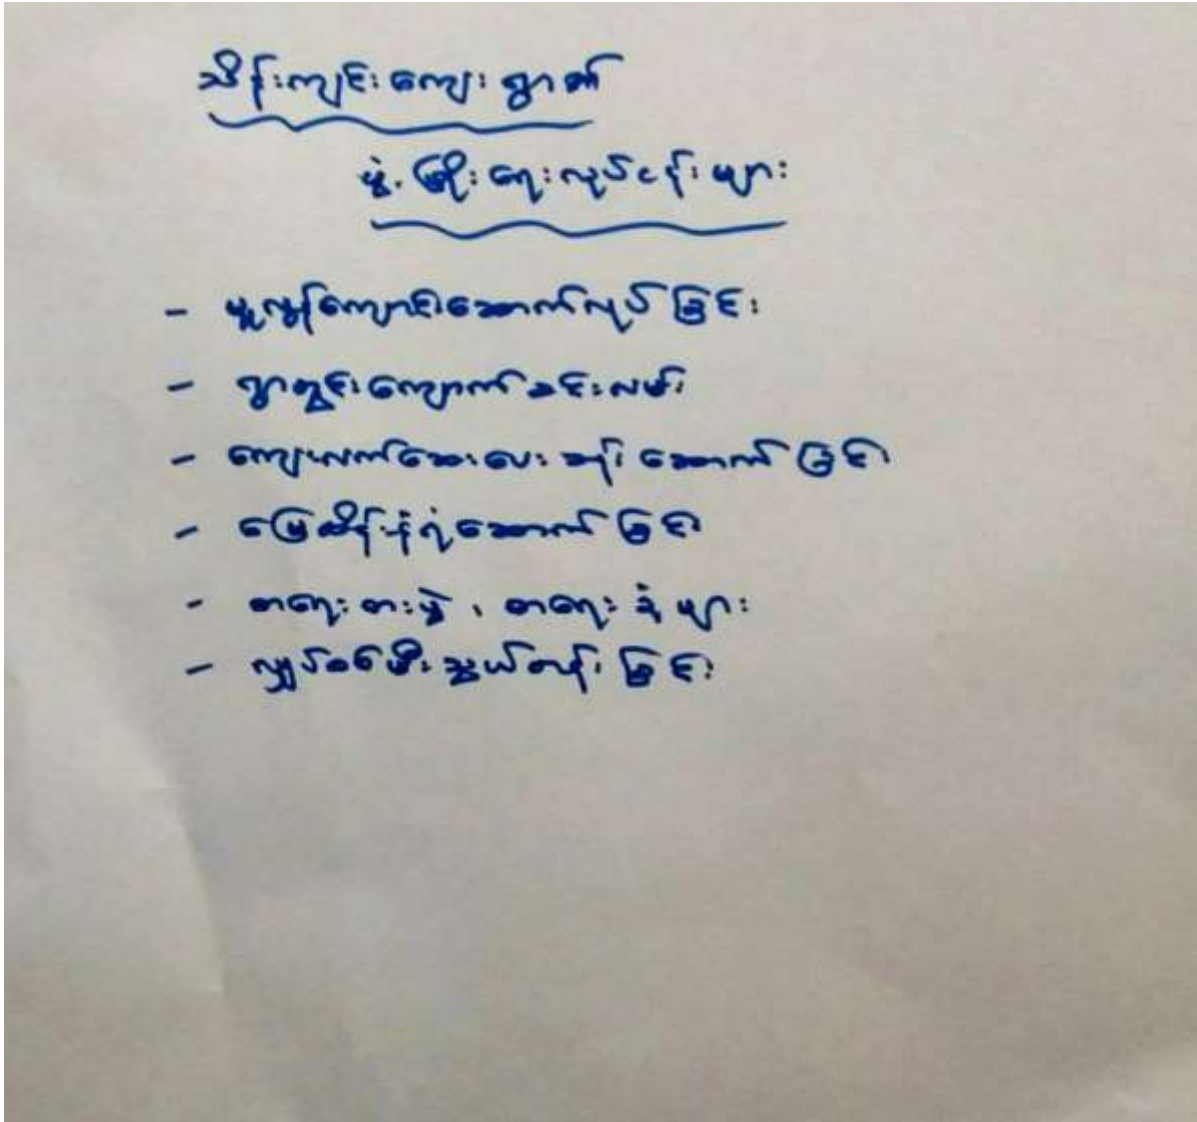 သိန်းကျင်းကျေးရွာ၏
ဖွံ့ဖြိုးရေးလုပ်ငန်းများ
- မူလွန်ကျောင်းဆောက်လုပ်ခြင်း
- ရွာတွင်းကျောက်ခင်းလမ်း
- ကျေးလက်ဆေးပေးခန်းဆောက်ခြင်း
- မြေထိန်းနံရံဆောက်ခြင်း
- တရေးစားပွဲ၊ တရေးခုံများ
- လျှပ်စစ်မီးသွယ်တန်းခြင်း